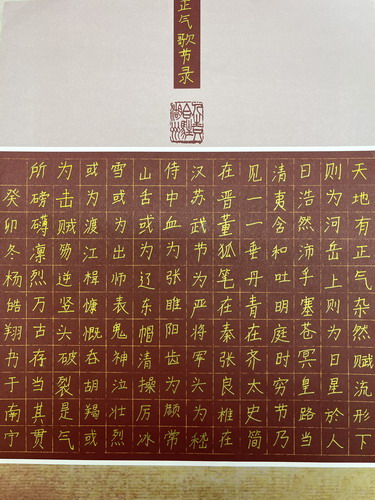 正气歌节录
天地有正气杂然赋流形下
则为河岳上则为日星於人
曰浩然沛乎塞苍冥皇路当
清夷含和吐明庭时穷节乃
见一一垂丹青在齐太史简
在晋董狐笔在秦张良椎在
汉苏武节为严将军头为嵇
侍中血为张睢阳齿为颜常
山舌或为辽东帽清操厉冰
雪或为出师表鬼神泣壮烈
或为渡江楫慷慨吞胡羯或
为击贼笏逆竖头破裂是气
所磅礴凛烈万古存当其贯
癸卯冬杨皓翔书于南宁